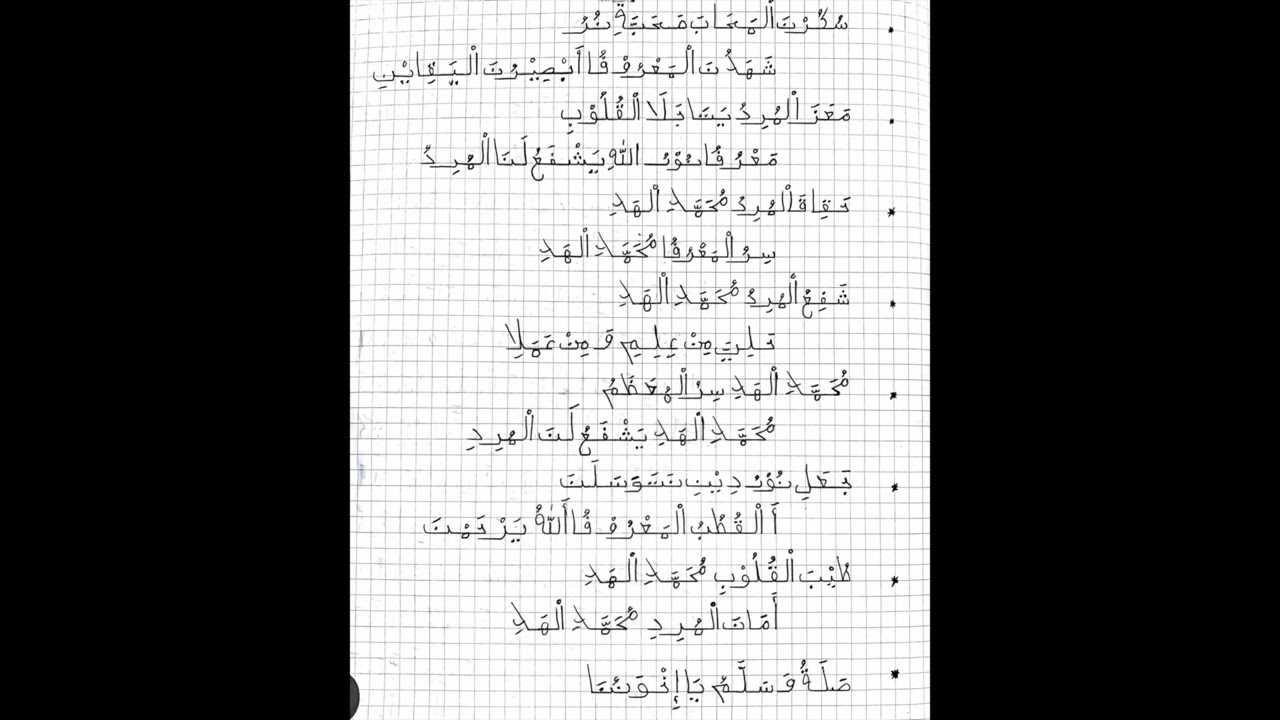 سُكُرْتَ الْمَحَابَ مَحَبَّةِ نُرُ
شَهَدُتَ الْمَعْرُوْفُا أَبْصِيْرُتَ الْيَقِايْنِ
مَعَزَ الْمُرِدُ يَسَابَلَا الْقُلُوْبِ
مَعْرُفُا نُوْرُ اللّٰهِ يَشْفَعُ لَنَا الْمُرِدُ
حَقِاقَ الْمُرِدُ مُحَمَّدِ الْهَدِ
سِرُ الْمَعْرُفُا مُحَمَّدِ الْهَدِ
شَفِعُ الْمُرِدُ مُحَمَّدِ الْهَدِ
مِنْ عِلِمِ وَ مِنْ عَمَلِا
مُحَمَّدِ الْهَدِ سِرُ الْمعَظَمُ
مُحَمَّدِ الْهَدِ يَشْفَعُ لَنَ الْمُرِدِ
بَجَعَلِ نُوْرُ دِيْنِ تَسَوَسَلَتَ
أَ الْقُطُبُ الْمَعْرُوْفُا أَللّٰهُ يَرْحَمْتَ
طُيِبَ الْقُلُوْبِ مُحَمَّدِ الْهَدِ
أَمَاتَ الْمُرِدِ مُحَمَّدِ الْهَدِ
صَلَةُ وَسَلَّمُ يَا إِخْوَنُنَا